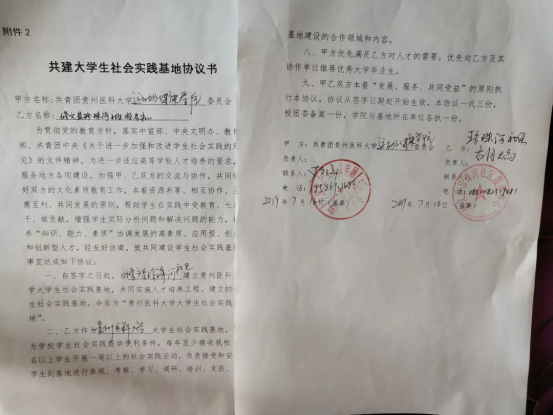 附件2
共建大学生社会实践基地协议书
甲方名称：共青团贵州医科大学运动与健康学院委员会
乙方名称：
为贯彻党的教育方针，落实中宣部、中央文明办、教
部、共青团中央《关于进一步加强和改进学生社会实践的
见》的文件精神，为进一步适应高等学校人才培养的要求，
服务地方各项建设，加强甲、乙双方的交流与协作，共同
好双方的文化素质教育工作，本着资源共享、相互协作、
惠互利、共同发展的原则，帮助学生在实践中受教育、长
干、做贡献，增强学生实际分析问题和解决问题的能力，
养“知识、能力、素质”协调发展的高素质、应用型、创
和创新型人才，经友好协商，就共同建设学生社会实践基
事宜达成如下协议：
一、自签字之日起，在 建立贵州医科
大学学生社会实践基地，共同实施人才培养工程。建立的
生社会实践基地，命名为“贵州医科大学大学生社会实践
地”。
二、乙方作为贵州医科大学大学生社会实践基地，
为学校学生社会实践提供便利条件，每年至少接收我校
名以上学生开展一周以上的社会实践活动，负责接受和安
学生到基地进行参观、考察、学习、调研、培训、支医、
基地建设的合作领域和内容。
八、甲方优先满足乙方对人才的需要，优先向乙方及其
协作单位推荐优秀大学毕业生。
九、甲乙双方本着“发展、服务、共同受益”的原则执
行本协议。协议从签字日期起开始生效。本协议一式三份，
校团委备案一份，学院与基地所在单位各执一份。
甲 方：共青团贵州医科大学 委员会 乙 方：
负责人： 负责人：
联系人： 联系人：
电 话： 电话：
2019年7月16日（盖章） 2019年7月16日（盖章）